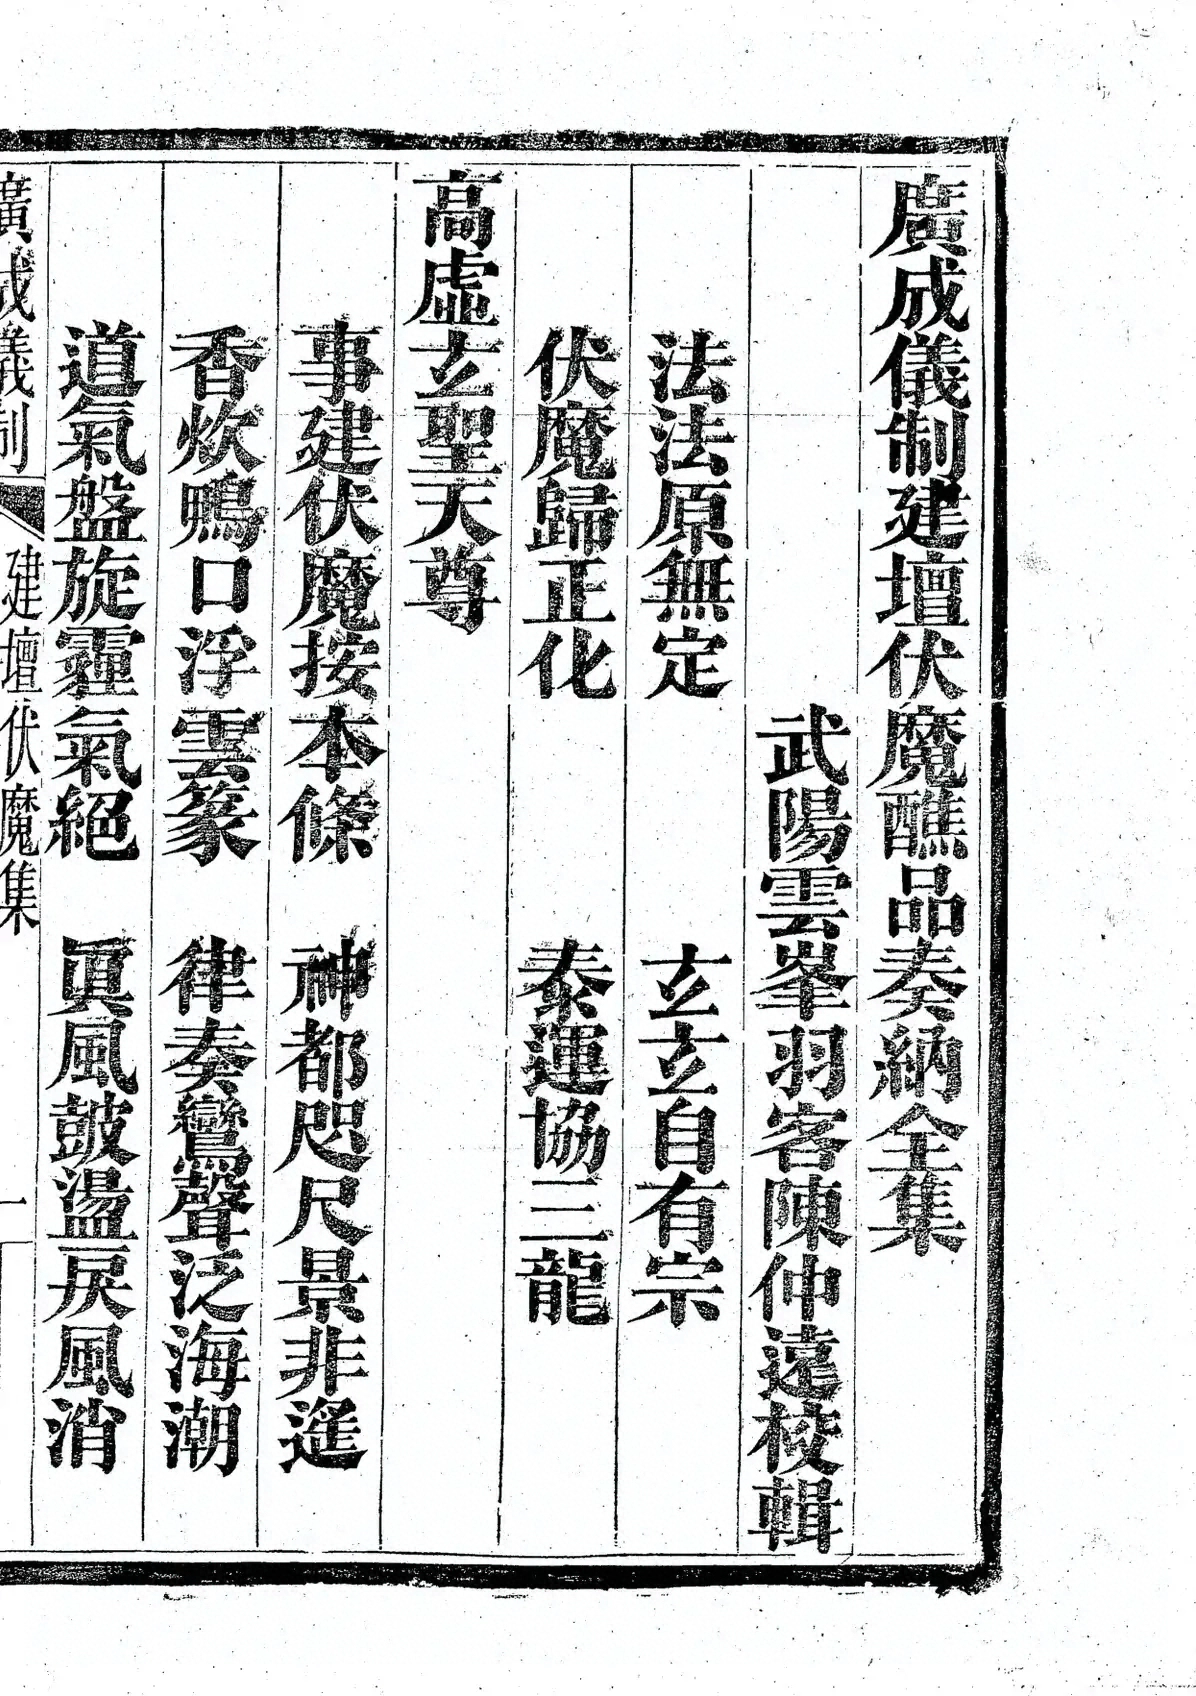 廣成儀制建壇伏魔醮品奏納全集
武陽雲峯羽客陳仲遠校輯
法法原無定 玄玄自有宗
伏魔歸正化 泰運協三龍
高虛玄聖天尊
事建伏魔按本條 神都咫尺景非遙
香炊鴨口浮雲篆 律奏鸞聲泛海潮
道氣盤旋霾氣絕 眞風鼓盪戾風消
廣成儀制 建壇伏魔集 一